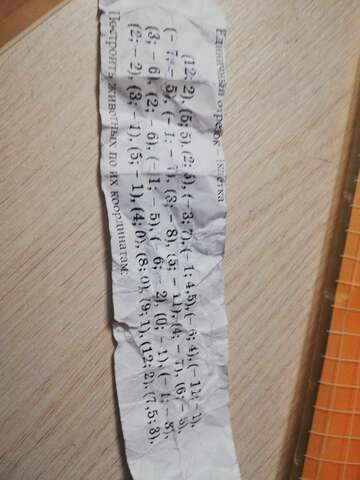 Единичный отрезок клетка
(12; 2), (5; 5), (−3; 7), (−1; 4,5), (−6; 4), (−11; −1),
(−7; −5), (−1; −7), (3; −8), (5; −11), (4; −7),
(3; −6), (2; −6), (−1; −5), (−6; −2), (0; −1),
(2; −2), (3; −1), (5; −1), (4; 0), (8; 0), (9; 1), (12; 2), (7,5; 3),
Построить животных по их координатам: